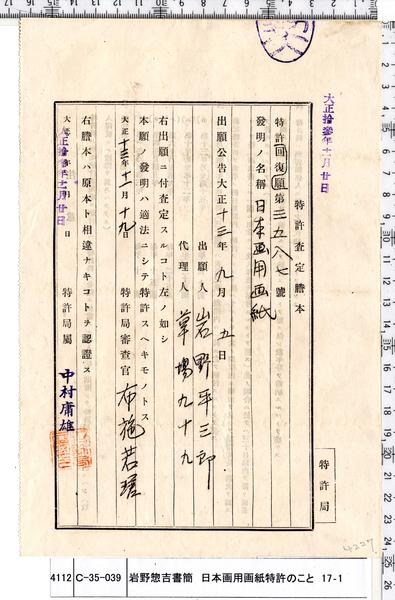 大正拾参年十一月廿日
特許査定謄本
特許回復願第三五八七號
發明ノ名稱 日本画用画紙
出願公告大正十三年九月五日
出願人 岩野平三郎
代理人 草場九十九
右出願ニ付査定スルコト左ノ如シ
本願ノ發明ハ適法ニシテ特許スヘキモノトス
大正十三年十一月十九日 特許局審査官 布施若瑳
右謄本ハ原本ト相違ナキコトヲ認證ス
大正拾参年十一月廿日 特許局屬 中村庸雄
特許局
4227
4112 C-35-039 岩野惣吉書簡 日本画用画紙特許のこと 17-1